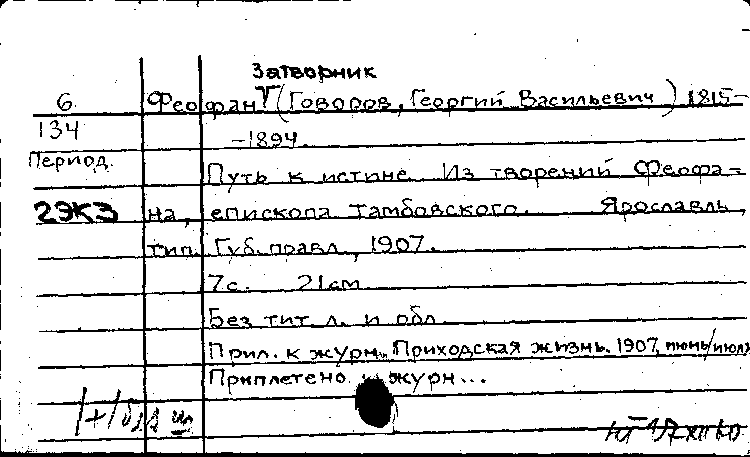 Затворник
6 Феофан (Говоров, Георгий Васильевич) 1815-
134 -1894.
Период. Путь к истине. Из творений Феофа=
2ЭКЗ на, епископа Тамбовского. Ярославль,
тип. Губ. правл., 1907.
7с. 21см.
Без тит. л. и обл.
Прил. к журн. Приходская жизнь. 1907, июнь/июль
Приплетено к журн...